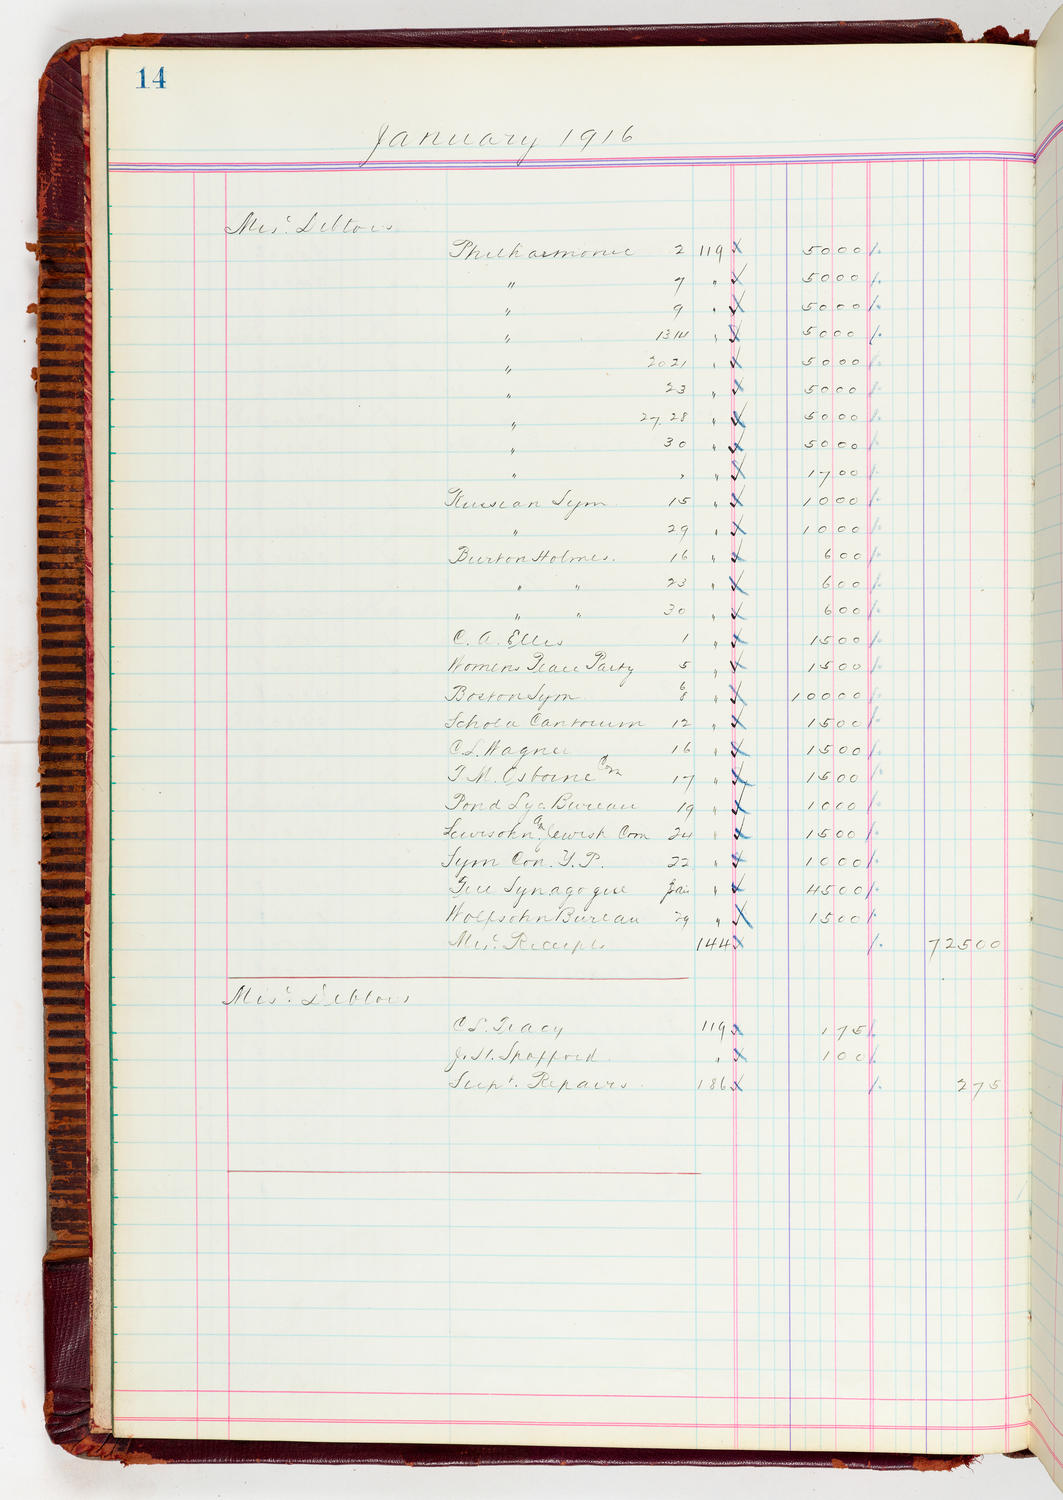 14
January 1916
Misc. Debtors
Philharmonic 2 119 5000
" 7 " 5000
" 9 " 5000
" 13 14 " 5000
" 20 21 " 5000
" 23 " 5000
" 27. 28 " 5000
" 30 " 5000
" " " 1700
Russian Sym 15 " 1000
" 29 " 1000
Burton Holmes. 16 " 600
" " 23 " 600
" " 30 " 600
C. A. Ellis 1 " 1500
Womens Peace Party 5 " 1500
Boston Sym. 6 8 " 10000
Schola Cantorum 12 " 1500
C. L. Wagner 16 " 1500
T. M. Osborne Com 17 " 1500
Pond Lyc. Bureau 19 " 1000
Lewisohn Am. Jewish Com 24 " 1500
Sym Con. Y. P. 22 " 1000
Free Synagogue Jan " 4500
Wolfsohn Bureau 29 " 1500
Misc. Receipts 144 72500
Misc. Debtors
C. L. Tracy 119 175
J. H. Spafford. " 100
Supt. Repairs. 186 275